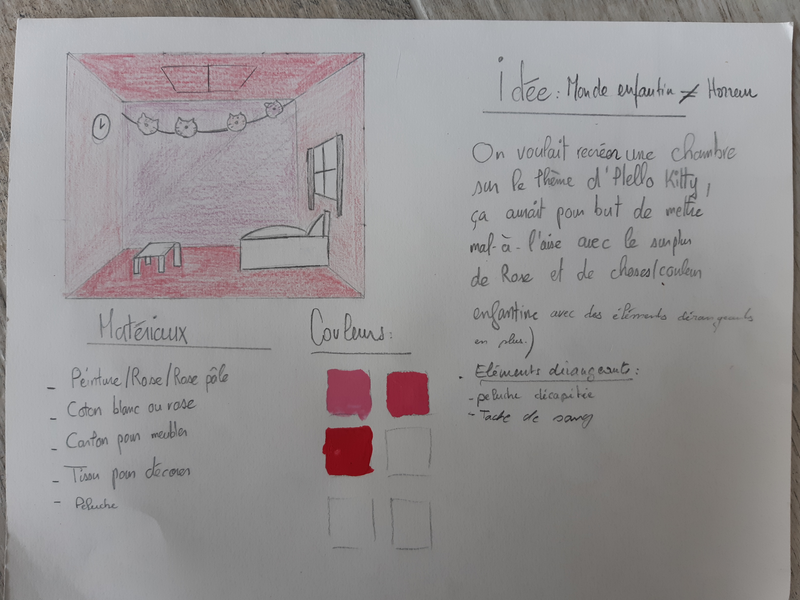 idée : Monde enfantin ≠ Horreur
On voulait recréer une chambre
sur le thème d'Hello Kitty,
ça aurait pour but de mettre
mal-à-l'aise avec le surplus
de Rose et de choses/couleur
enfantine avec des éléments dérangeants
en plus.)
Eléments dérangeants :
- peluche décapitée
- Tache de sang
Matériaux
- Peinture/Rose/Rose pâle
- Coton blanc ou rose
- Carton pour meubles
- Tissu pour décorer
- Peluche
Couleurs :